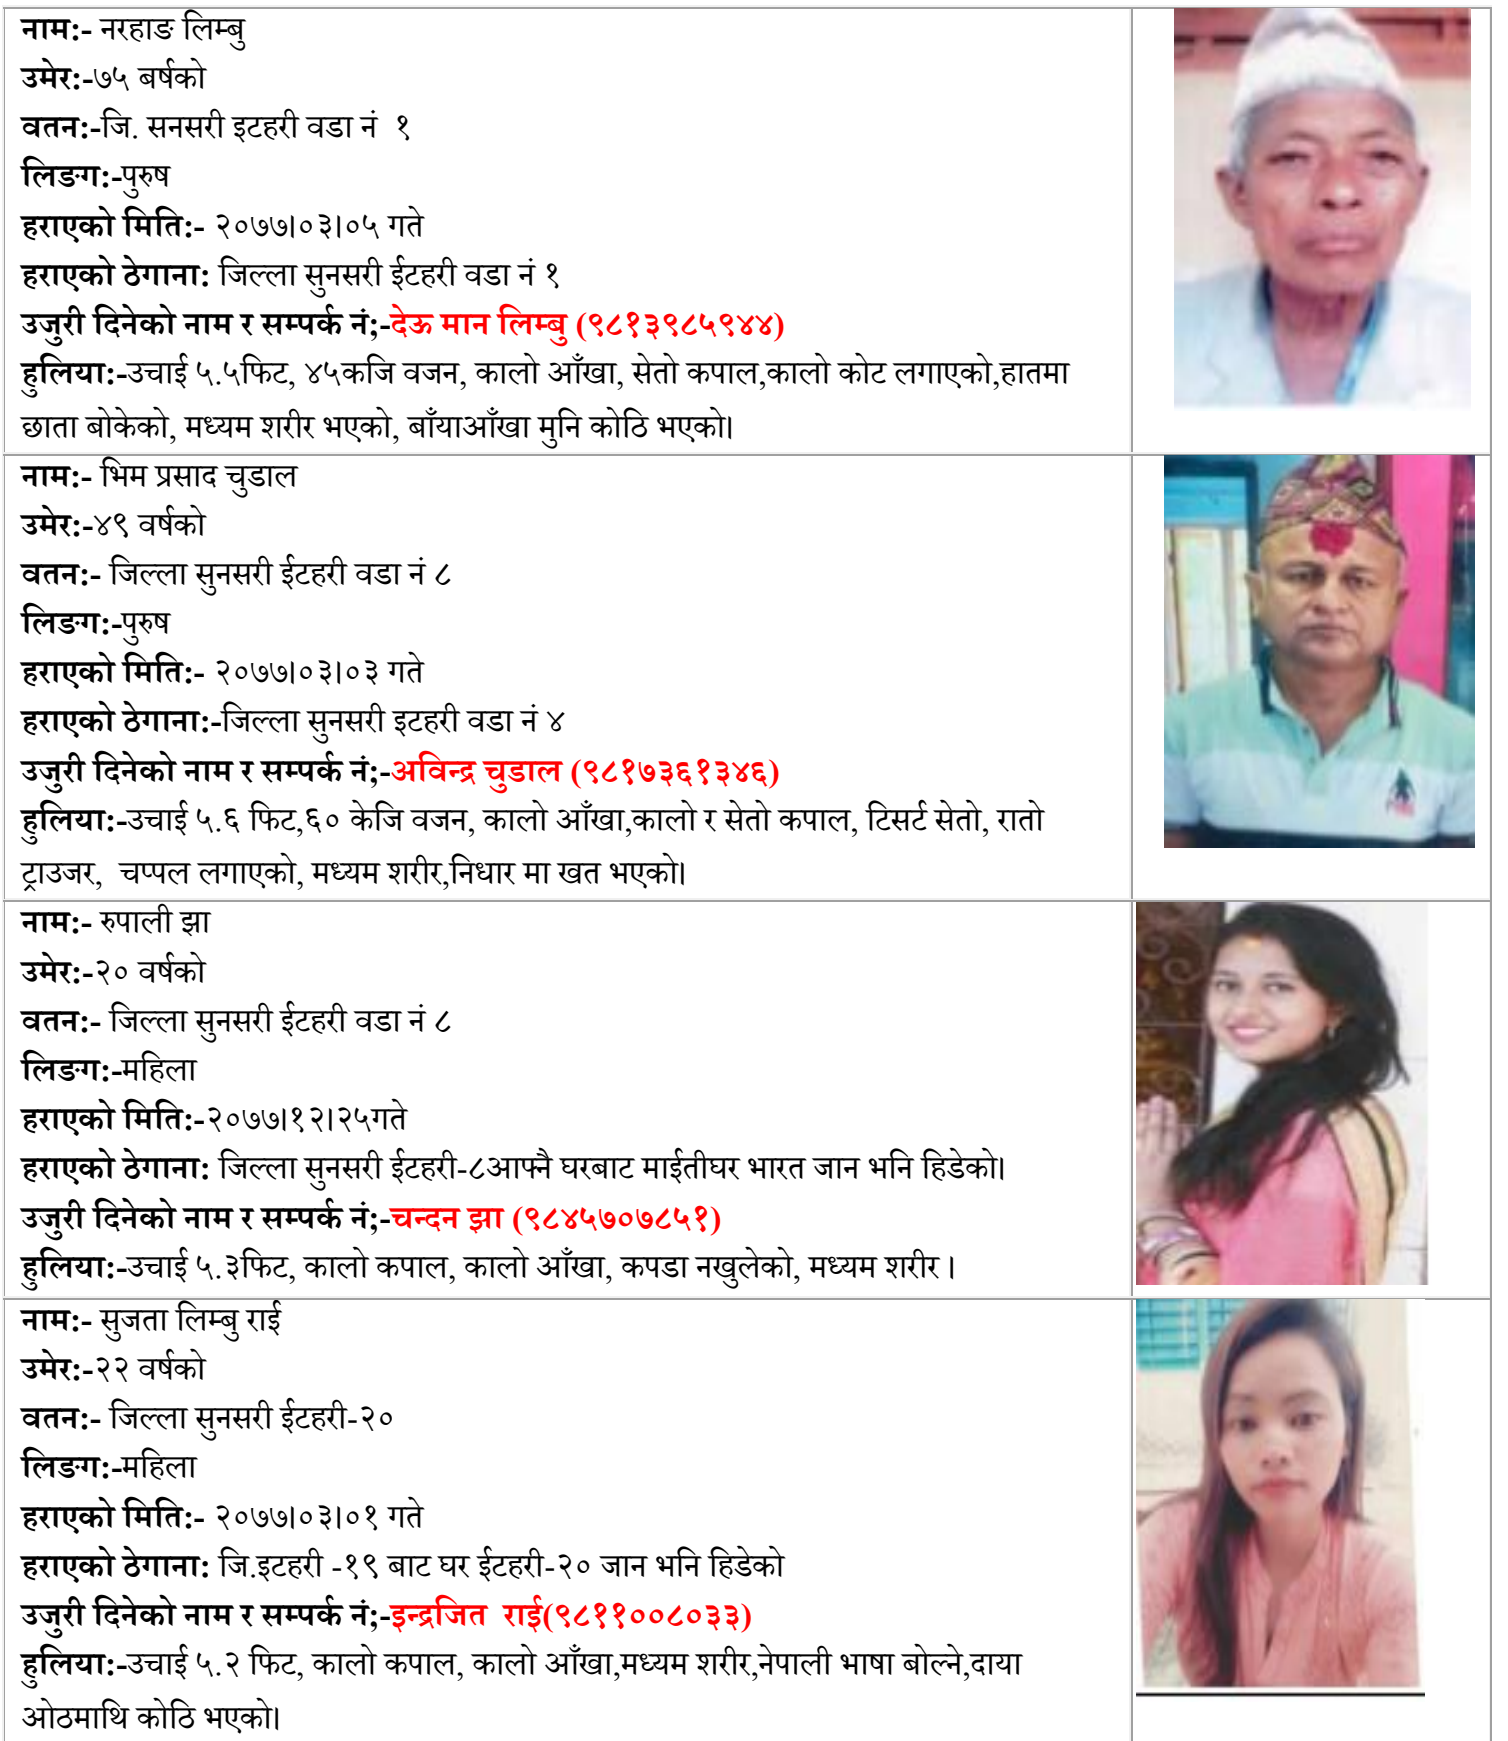 नाम:- नरहाङ लिम्बु
उमेर:-७५ बर्षको
वतन:-जि. सनसरी इटहरी वडा नं १
लिङग:-पुरुष
हराएको मिति:- २०७७।०३।०५ गते
हराएको ठेगाना: जिल्ला सुनसरी ईटहरी वडा नं १
उजुरी दिनेको नाम र सम्पर्क नं;-देऊ मान लिम्बु (९८१३९८५९४४)
हुलिया:-उचाई ५.५फिट, ४५कजि वजन, कालो आँखा, सेतो कपाल,कालो कोट लगाएको,हातमा
छाता बोकेको, मध्यम शरीर भएको, बाँयाआँखा मुनि कोठि भएको।
नाम:- भिम प्रसाद चुडाल
उमेर:-४९ वर्षको
वतन:- जिल्ला सुनसरी ईटहरी वडा नं ८
लिङग:-पुरुष
हराएको मिति:- २०७७।०३।०३ गते
हराएको ठेगाना:-जिल्ला सुनसरी इटहरी वडा नं ४
उजुरी दिनेको नाम र सम्पर्क नं;-अविन्द्र चुडाल (९८१७३६१३४६)
हुलिया:-उचाई ५.६ फिट,६० केजि वजन, कालो आँखा,कालो र सेतो कपाल, टिसर्ट सेतो, रातो
ट्राउजर, चप्पल लगाएको, मध्यम शरीर,निधार मा खत भएको।
नाम:- रुपाली झा
उमेर:-२० वर्षको
वतन:- जिल्ला सुनसरी ईटहरी वडा नं ८
लिङग:-महिला
हराएको मिति:-२०७७।१२।२५गते
हराएको ठेगाना: जिल्ला सुनसरी ईटहरी-८आफ्नै घरबाट माईतीघर भारत जान भनि हिडेको।
उजुरी दिनेको नाम र सम्पर्क नं;-चन्दन झा (९८४५७०७८५१)
हुलिया:-उचाई ५.३फिट, कालो कपाल, कालो आँखा, कपडा नखुलेको, मध्यम शरीर ।
नाम:- सुजता लिम्बु राई
उमेर:-२२ वर्षको
वतन:- जिल्ला सुनसरी ईटहरी-२०
लिङग:-महिला
हराएको मिति:- २०७७।०३।०१ गते
हराएको ठेगाना: जि.इटहरी -१९ बाट घर ईटहरी-२० जान भनि हिडेको
उजुरी दिनेको नाम र सम्पर्क नं;-इन्द्रजित राई(९८११००८०३३)
हुलिया:-उचाई ५.२ फिट, कालो कपाल, कालो आँखा,मध्यम शरीर,नेपाली भाषा बोल्ने,दाया
ओठमाथि कोठि भएको।